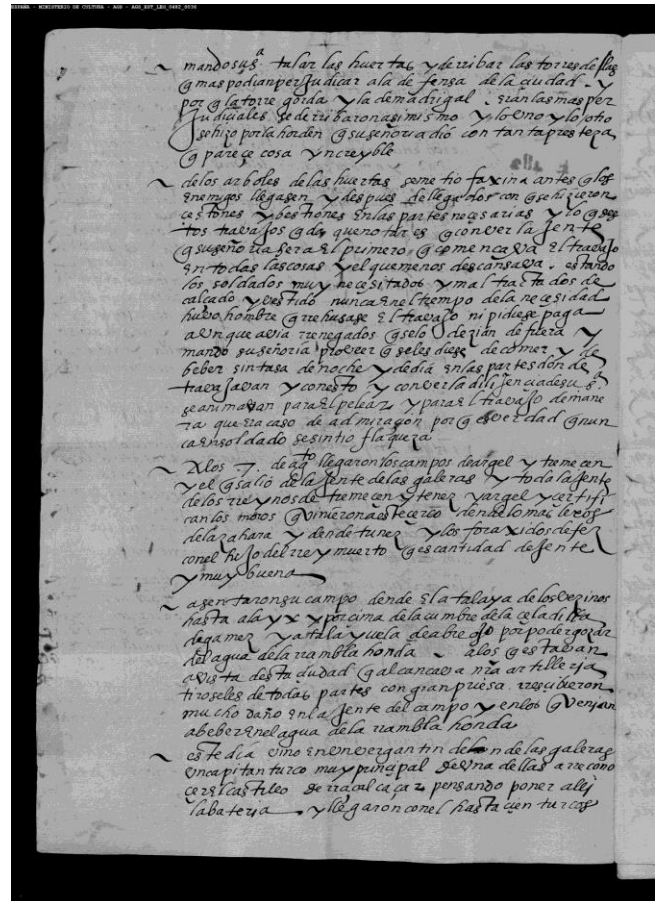 ESPAÑA - MINISTERIO DE CULTURA - AGS - AGS_EST_LEG_0482_0036
mando su sª talar las huertas y derribar las torres dellas
q mas podian perjudicar a la defensa de la ciudad y
por q la torre gorda y la de madrigal eran las mas per
judiciales se derribaron asimismo y lo uno y lo otro
se hizo por la horden q su señoria dió con tanta presteza
q pareçe cosa yncreyble
de los arboles de las huertas se metio faxina antes q los
enemigos llegasen y despues de llegados con q se hizieron
çestones y bestiones en las partes neçesarias y lo q
tos travajos q de notar es q con ver la jente
q su señoria era el primero q començava el travajo
en todas las cosas y el que menos descansava estando
los soldados muy neçesitados y mal tractados de
calçado y vestido nunca en el tiempo de la neçesidad
huvo hombre q rrehusase el travajo ni pidiese paga
aunque avia rrenegados q se lo dezian de fuera y
mando su señoria proveer q se les diese de comer y de
beber sin tasa de noche y de dia en las partes donde
travajavan y con esto y con ver la dilijençia de su sª
se animavan para el pelear y para el travajo de mane
ra que era caso de admiraçion por q es verdad q nun
ca en soldado se sintio flaqueza
A los 7 de agto llegaron los campos de argel y tremeçen
y el q salió de la jente de las galeras y toda la jente
de los rreynos de tremeçen y tenez y argel y çertifi
can los moros q vinieron a este çerco dende lo mas lexos
de la zahara y dende tunez y los foraxidos de fez
con el hijo del rrey muerto q es cantidad de jente
y muy buena
asentaron su campo dende el atalaya de los vezinos
hasta a la por çima de la cumbre de la çeladilla
de gamez y atalayuela de abreo por poder gozar
del agua de la rrambla honda a los q estavan
a vista desta çiudad q alcançava nra artilleria
tiroseles de todas partes con gran priesa rresçibieron
mucho daño en la jente del campo y en los q venian
a beber en el agua de la rrambla honda
este dia vino en un vergantin de las galeras
un capitan turco muy prinçipal de una dellas a rrecono
çer el castillo de rraçalcaçar pensando poner alli
la bateria y llegaron con el hasta çien turcos